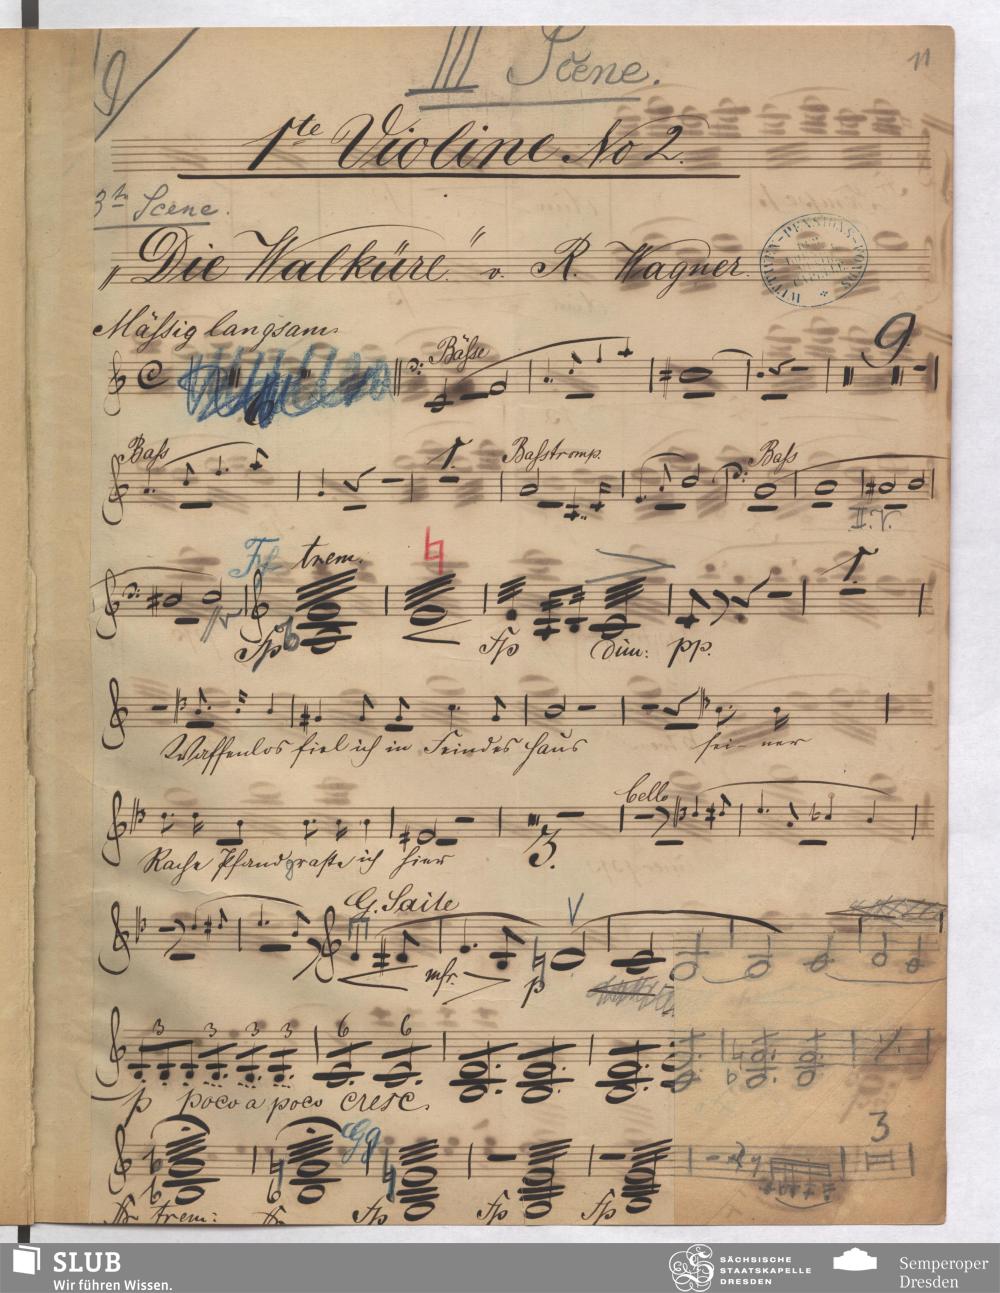 III Scene.
11
1te Violine No 2.
3te Scene.
"Die Walküre" v. R. Wagner.
WITTWEN-PENSIONS-FONDS
Mäßig langsam.
Bässe
9
Bass
1.
Basstromp.
Bass
Ff trem.
1.
fp
fp
dim: pp.
Waffenlos fiel ich in Feindes Haus
sei- ner
Cello
Rache Pfand raste ich hier
3.
G. Saite
V
mf.
p
3 3 3 3 6 6
p poco a poco cresc.
Gg
3
trem:
fp
fp
fp
SLUB
Wir führen Wissen.
SÄCHSISCHE
STAATSKAPELLE
DRESDEN
Semperoper
Dresden